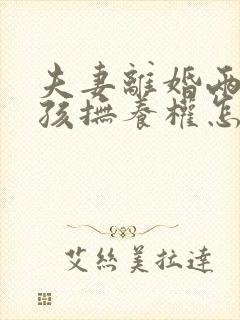 夫妻離婚兩
孩撫養權怎
艾絲美拉達